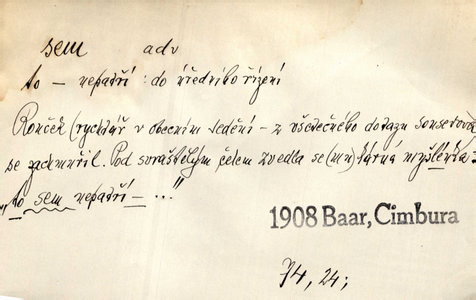 sem adv
to – nepatří: do úředního řízení
Rouček (rychtář v obecním sedění – z všetečného dotazu sousedova)
se zachmuřil. Pod svraštělým čelem zvedla se (mu) kárná myšlénka:
„to sem nepatří – ..."
1908 Baar, Cimbura
74, 24;